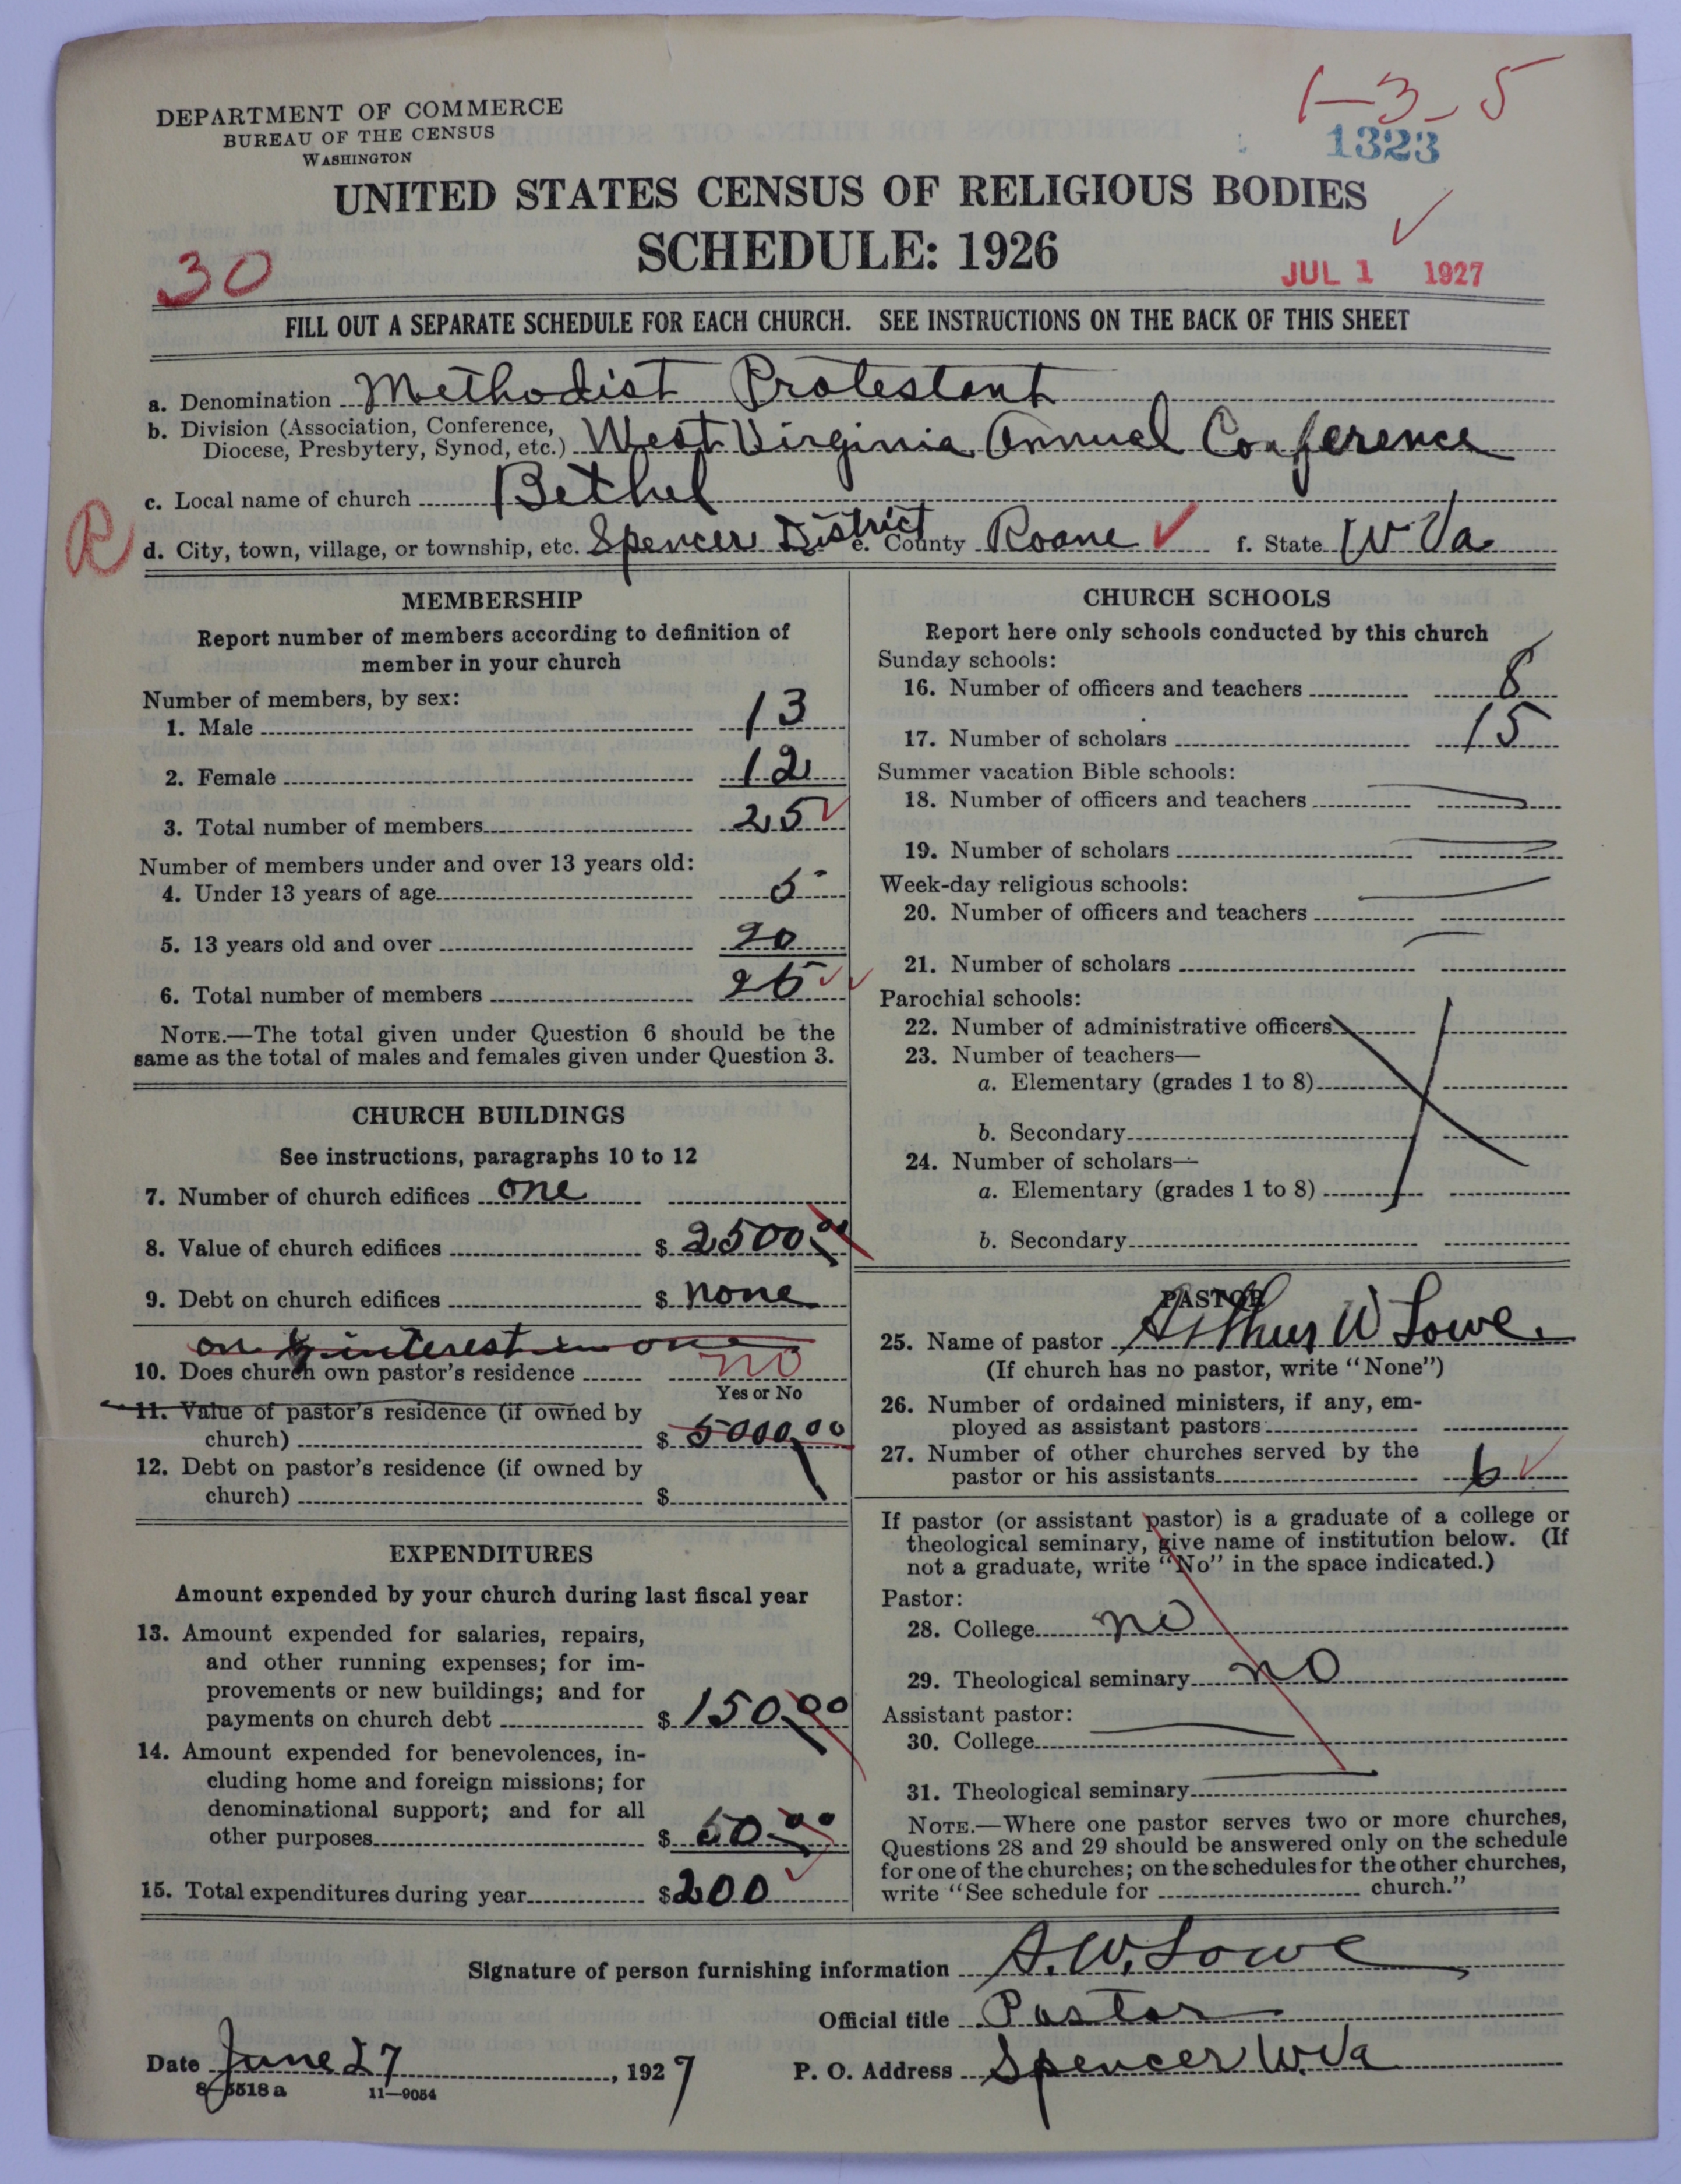 1-3-5
DEPARTMENT OF COMMERCE
BUREAU OF THE CENSUS
WASHINGTON
1323
UNITED STATES CENSUS OF RELIGIOUS BODIES
SCHEDULE: 1926
30
JUL 1 1927
FILL OUT A SEPARATE SCHEDULE FOR EACH CHURCH. SEE INSTRUCTIONS ON THE BACK OF THIS SHEET
a. Denomination Methodist Protestant
b. Division (Association, Conference,
Diocese, Presbytery, Synod, etc.) West Virginia Annual Conference
c. Local name of church Bethel
R
d. City, town, village, or township, etc. Spencer District e. County Roane ✓ f. State W Va.
MEMBERSHIP
Report number of members according to definition of
member in your church
Number of members, by sex:
1. Male 13
2. Female 12
3. Total number of members 25 ✓
Number of members under and over 13 years old:
4. Under 13 years of age 5
5. 13 years old and over 20
6. Total number of members 25 ✓✓
NOTE.—The total given under Question 6 should be the
same as the total of males and females given under Question 3.
CHURCH BUILDINGS
See instructions, paragraphs 10 to 12
7. Number of church edifices one
8. Value of church edifices $ 2500.00
9. Debt on church edifices $ none
interest in one
10. Does church own pastor's residence no
Yes or No
11. Value of pastor's residence (if owned by
church) $ 5000.00
12. Debt on pastor's residence (if owned by
church) $
EXPENDITURES
Amount expended by your church during last fiscal year
13. Amount expended for salaries, repairs,
and other running expenses; for im-
provements or new buildings; and for
payments on church debt $ 150.00
14. Amount expended for benevolences, in-
cluding home and foreign missions; for
denominational support; and for all
other purposes $ 50.00
15. Total expenditures during year $ 200
CHURCH SCHOOLS
Report here only schools conducted by this church
Sunday schools:
16. Number of officers and teachers 8
17. Number of scholars 15
Summer vacation Bible schools:
18. Number of officers and teachers
19. Number of scholars
Week-day religious schools:
20. Number of officers and teachers
21. Number of scholars
Parochial schools:
22. Number of administrative officers
23. Number of teachers—
a. Elementary (grades 1 to 8)
b. Secondary
24. Number of scholars—
a. Elementary (grades 1 to 8)
b. Secondary
PASTOR
25. Name of pastor Arthur W Lowe.
(If church has no pastor, write "None")
26. Number of ordained ministers, if any, em-
ployed as assistant pastors
27. Number of other churches served by the
pastor or his assistants 6 ✓
If pastor (or assistant pastor) is a graduate of a college or
theological seminary, give name of institution below. (If
not a graduate, write "No" in the space indicated.)
Pastor:
28. College no
29. Theological seminary no
Assistant pastor:
30. College
31. Theological seminary
NOTE.—Where one pastor serves two or more churches,
Questions 28 and 29 should be answered only on the schedule
for one of the churches; on the schedules for the other churches,
write "See schedule for church."
Signature of person furnishing information A. W. Lowe
Official title Pastor
Date June 27, 1927 P. O. Address Spencer W.Va
8-5518 a 11-9054